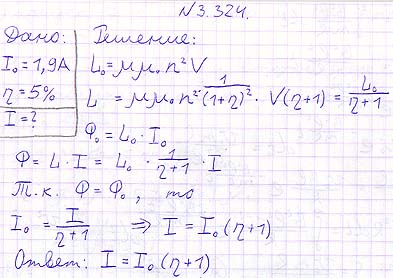 №3.324.
Дано: Решение:
I₀ = 1,9А L₀ = μμ₀n²V
η = 5% L = μμ₀n² · 1/(1+η)² · V(η+1) = L₀/(η+1)
I = ? Φ₀ = L₀ · I₀
Φ = L · I = L₀ · 1/(η+1) · I
Т.к. Φ = Φ₀, то
I₀ = I/(η+1) ⇒ I = I₀(η+1)
Ответ: I = I₀(η+1)